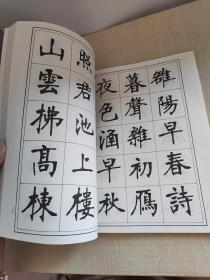 雒陽早春詩
暮聲雜初鴈
夜色涵早秋
照君池上樓
山雲拂髙棟